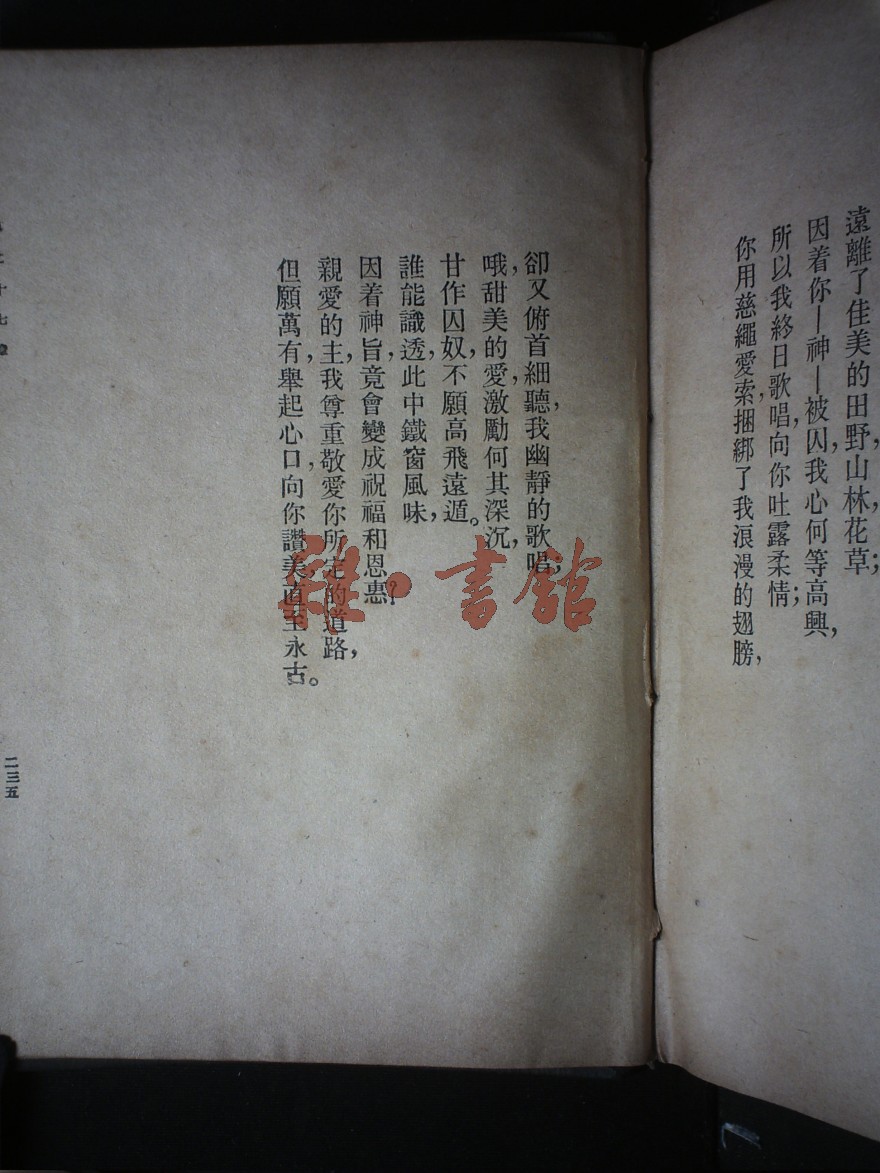 遠離了佳美的田野,山林,花草;
因着你—神—被囚,我心何等高興,
所以我終日歌唱,向你吐露柔情;
你用慈繩愛索,捆綁了我浪漫的翅膀,
卻又俯首細聽,我幽靜的歌唱;
哦,甜美的愛,激勵何其深沉,
甘作囚奴,不願高飛遠遁。
誰能識透,此中鐵窗風味,
因着神旨,竟會變成祝福和恩惠?
親愛的主,我尊重敬愛你所定的道路,
但願萬有,舉起心口,向你讚美,直至永古。
二三五
雜·書館